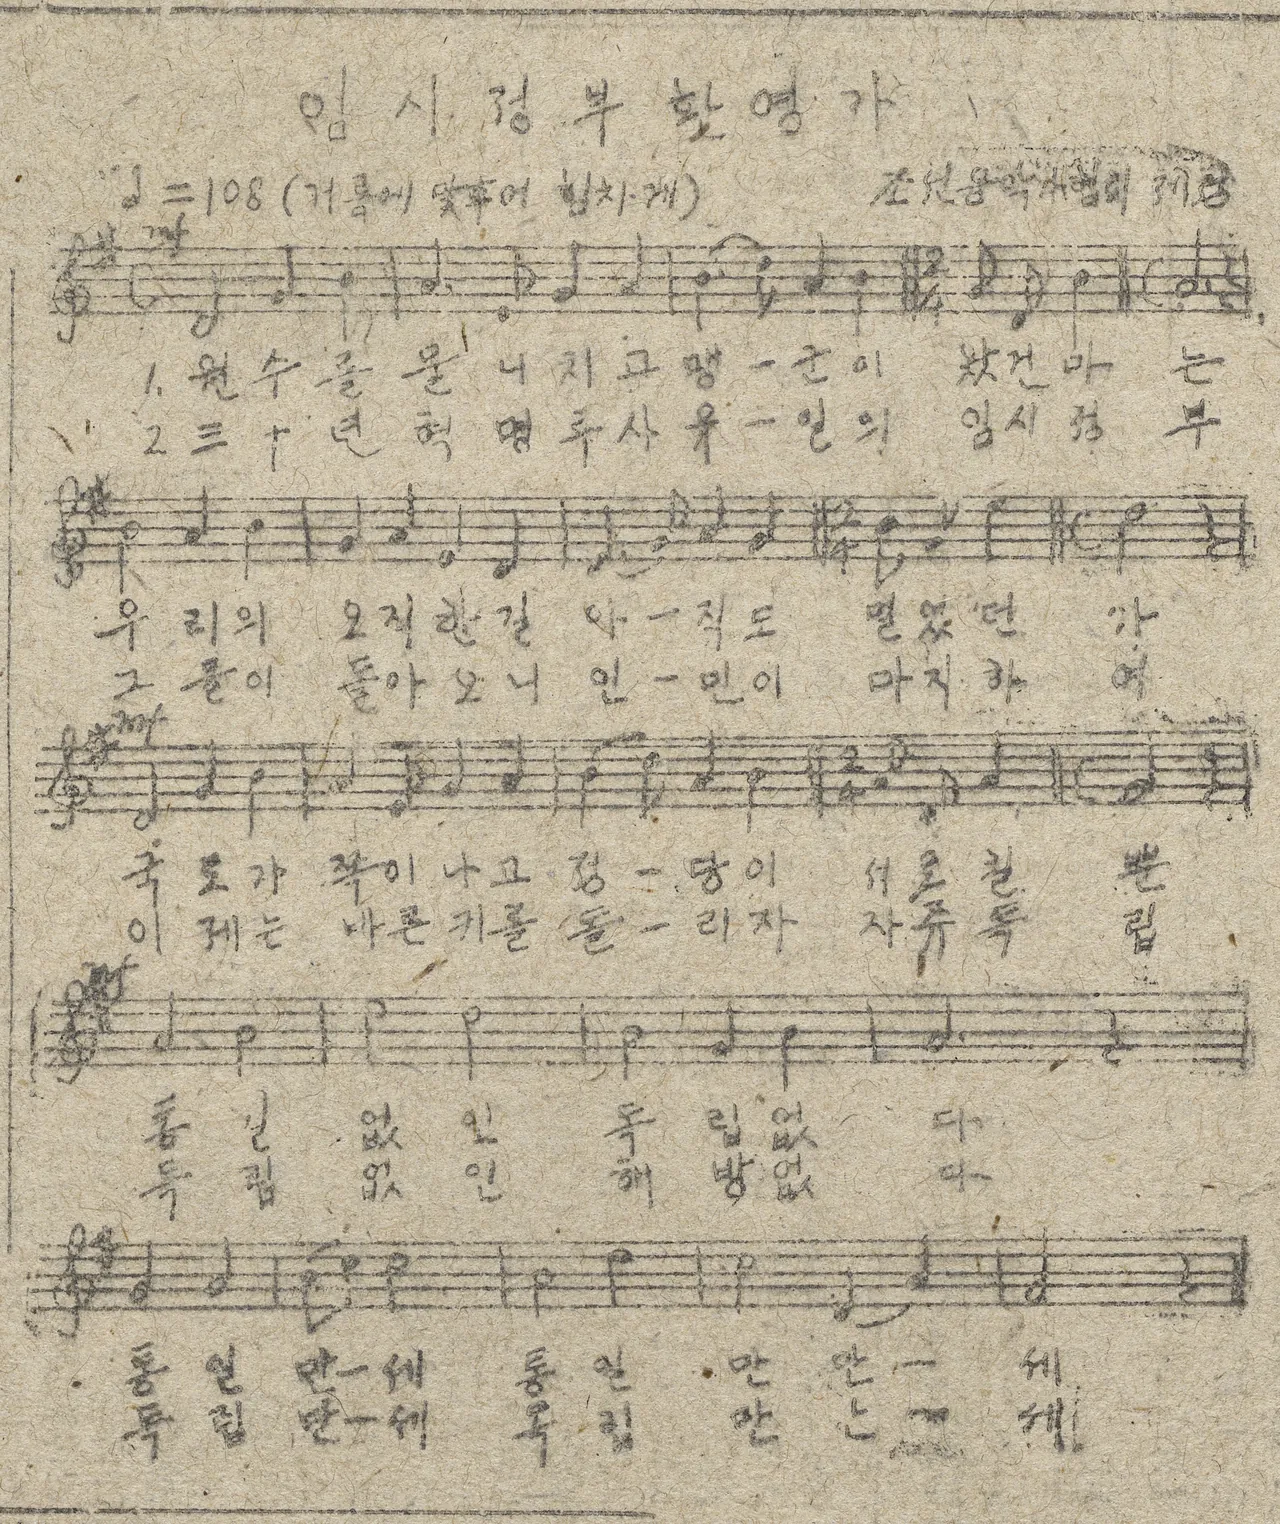 임시정부환영가
♩=108 (거름에 맞추어 힘차게)
mf
1. 원수를 물니치고 맹-군이 왔건마는
2 三十년 혁명투사 유-일의 임시정부
우리의 오직한길 아-직도 멀었던가
그들이 돌아오니 인-민이 마지하여
mf
국토가 쪽이나고 정-당이 서로 뿐
이제는 바른키를 돌-리자 자쥬독립
통일없인 독립없다
독립없인 해방없다
통일만-세 통일만만-세
독립만-세 독립만 세